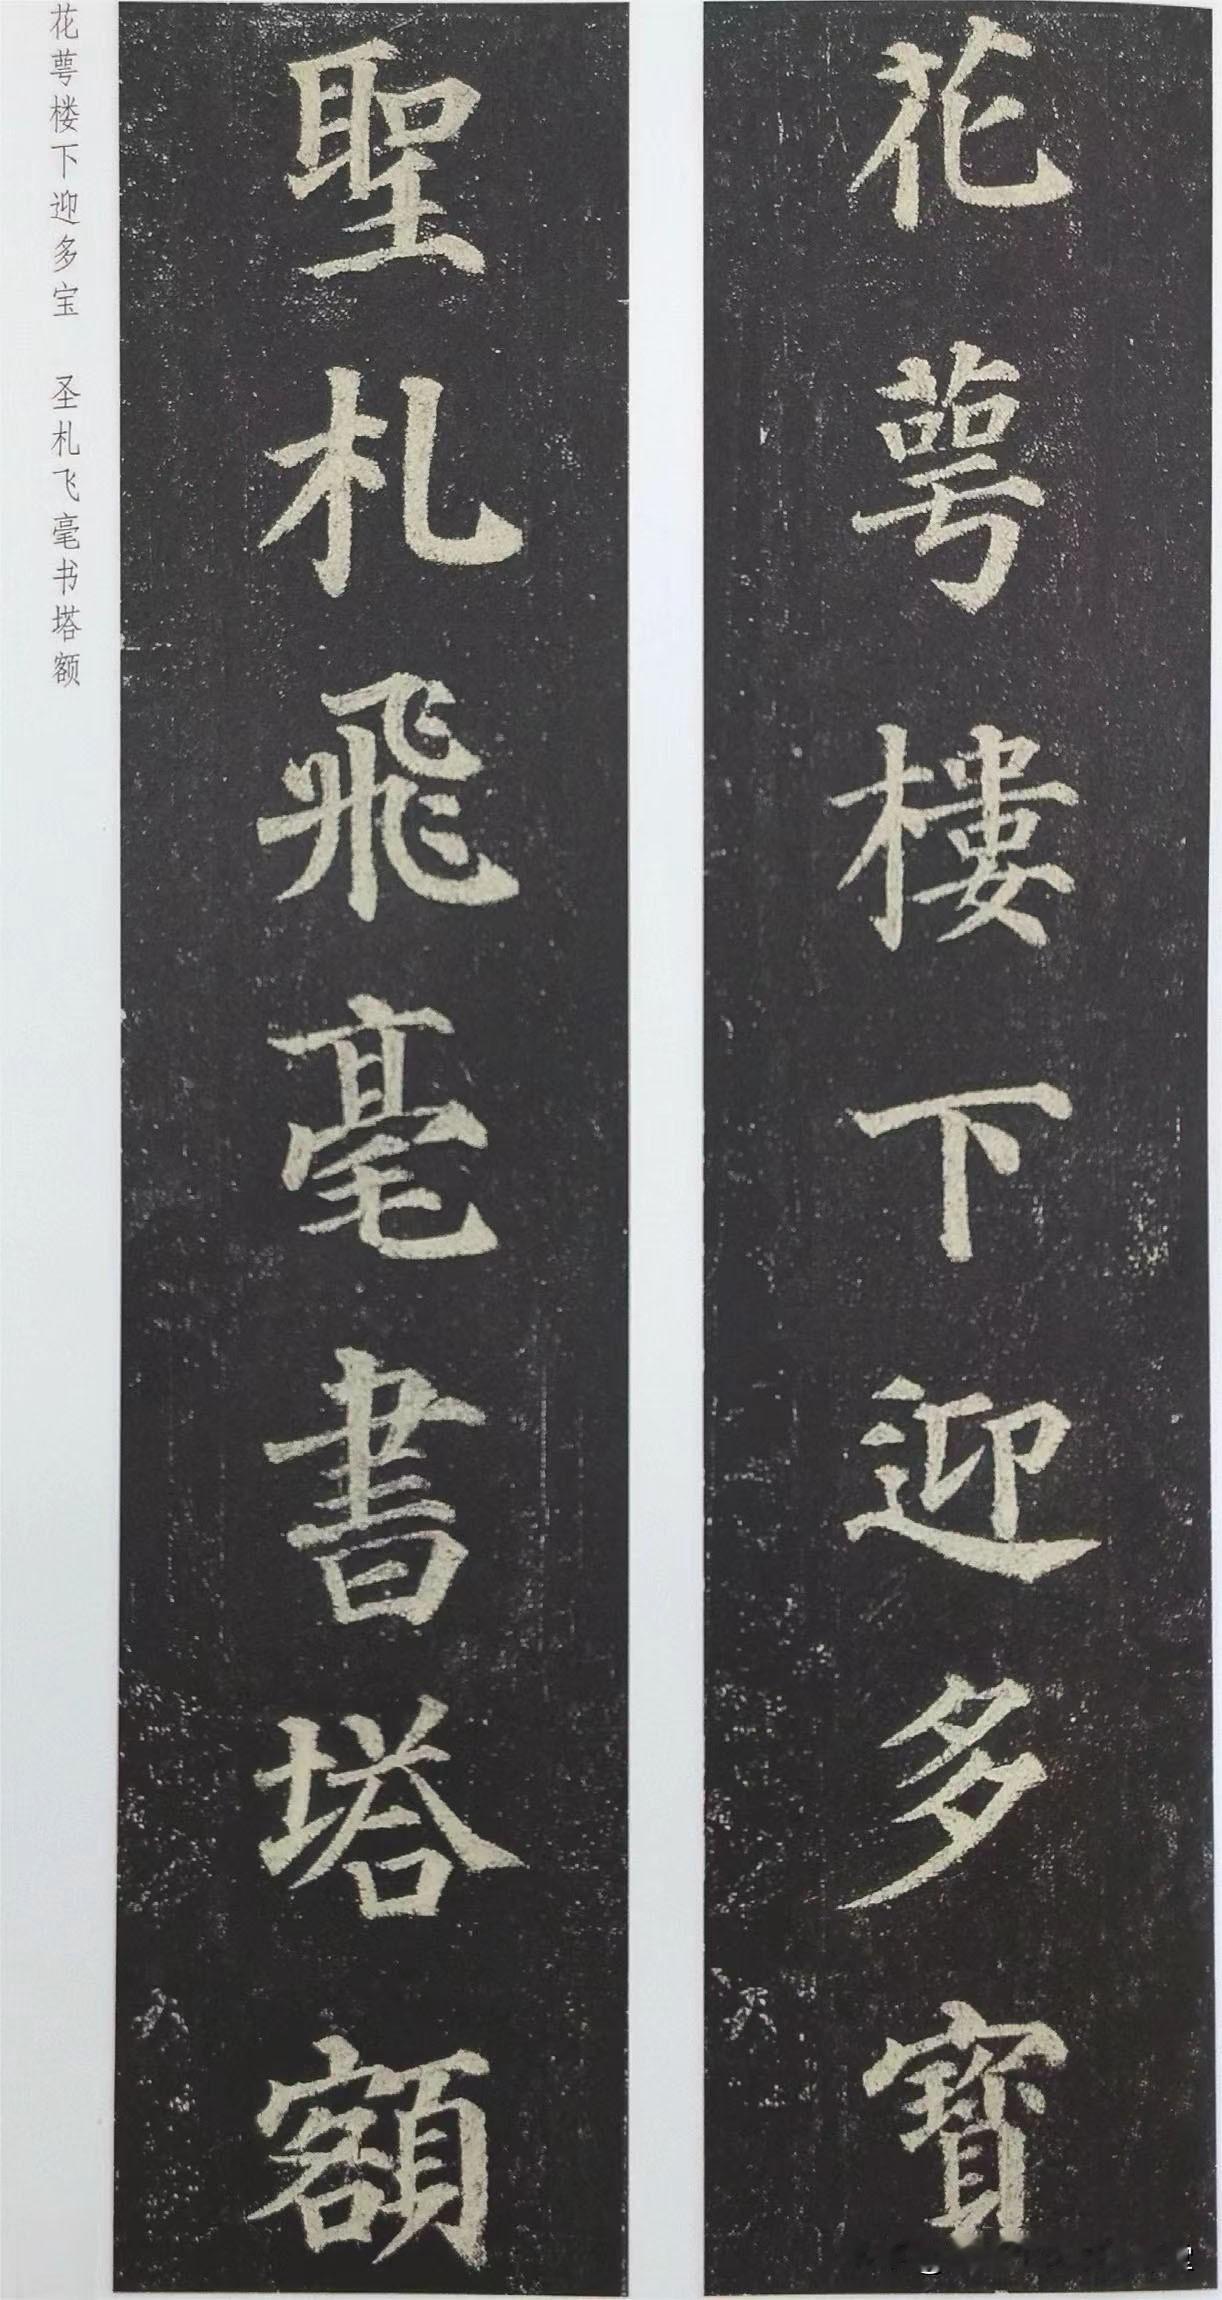 花萼樓下迎多寶
聖札飛毫書塔額
花萼楼下迎多宝 圣札飞毫书塔额